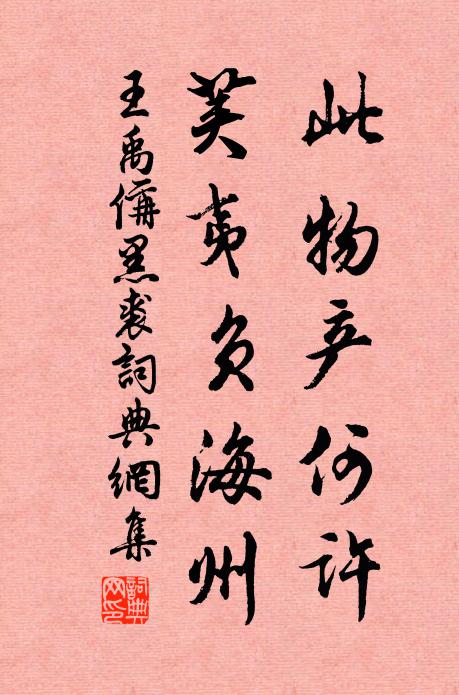 此物产何许
莱夷负海州
王禹偁黑裘詞典網集
詞典
网印